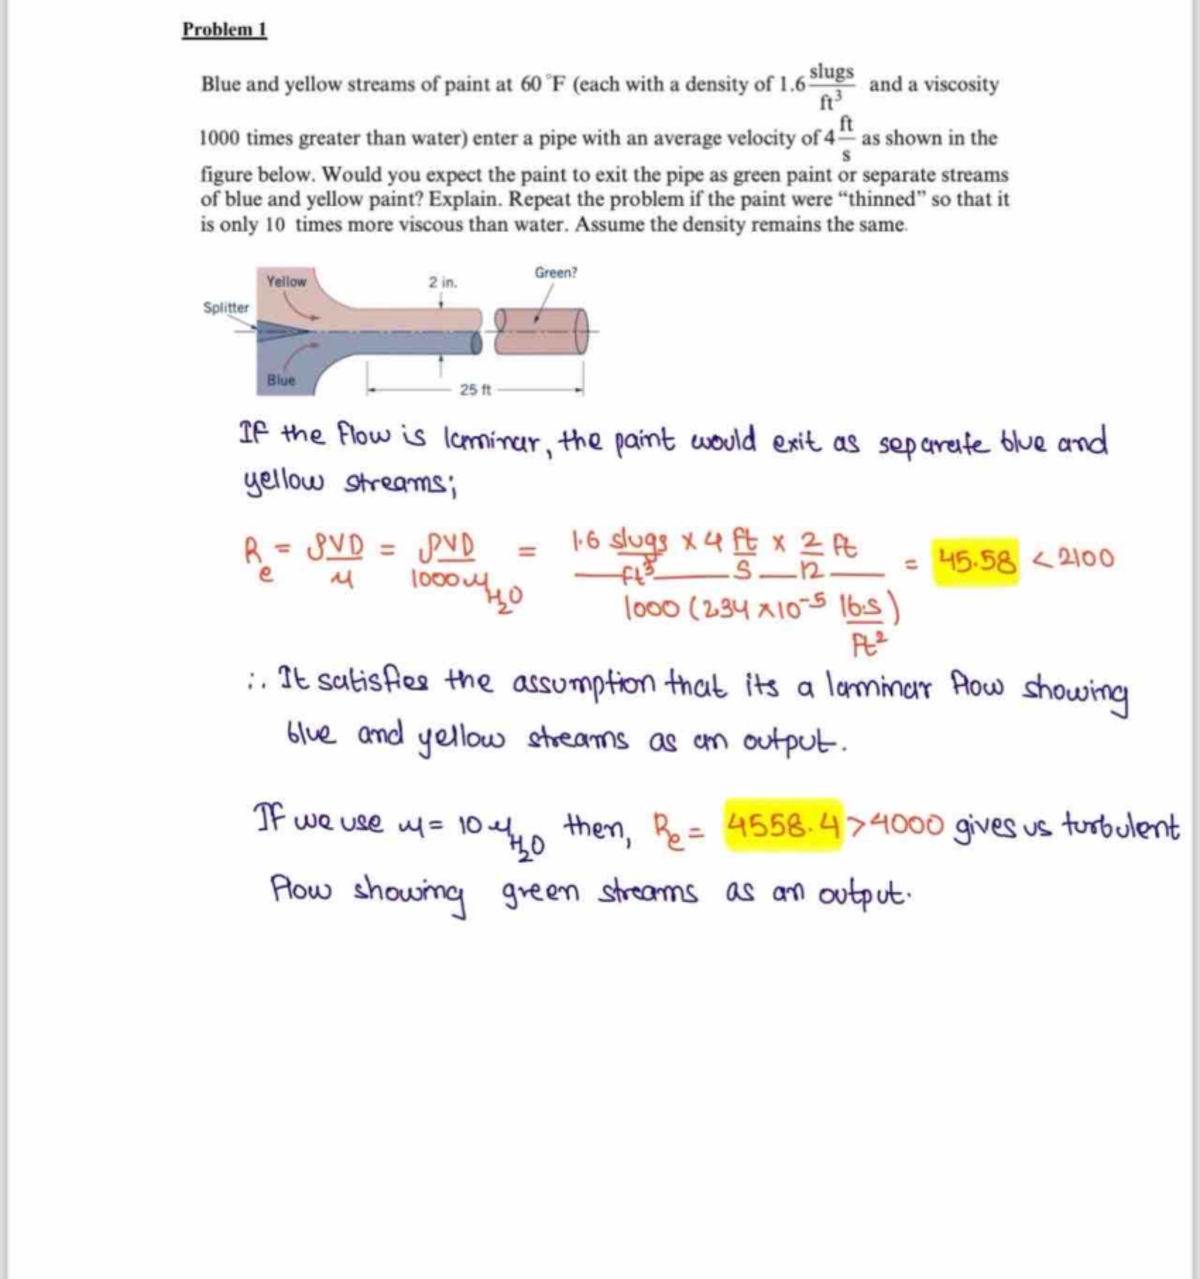 Problem 1
Blue and yellow streams of paint at 60 °F (each with a density of 1.6 slugs/ft³ and a viscosity
1000 times greater than water) enter a pipe with an average velocity of 4 ft/s as shown in the
figure below. Would you expect the paint to exit the pipe as green paint or separate streams
of blue and yellow paint? Explain. Repeat the problem if the paint were “thinned” so that it
is only 10 times more viscous than water. Assume the density remains the same.
Yellow
2 in.
Green?
Splitter
Blue
25 ft
If the flow is laminar, the paint would exit as separate blue and
yellow streams;
Re = ρVD/μ = ρVD/1000μH₂O = 1.6 slugs/ft³ x 4 ft/s x 2/12 ft / 1000 (2.34 x 10⁻⁵ lb.s/ft²) = 45.58 < 2100
∴ It satisfies the assumption that its a laminar flow showing
blue and yellow streams as an output.
If we use μ = 10 μH₂O then, Re = 4558.4 > 4000 gives us turbulent
flow showing green streams as an output.